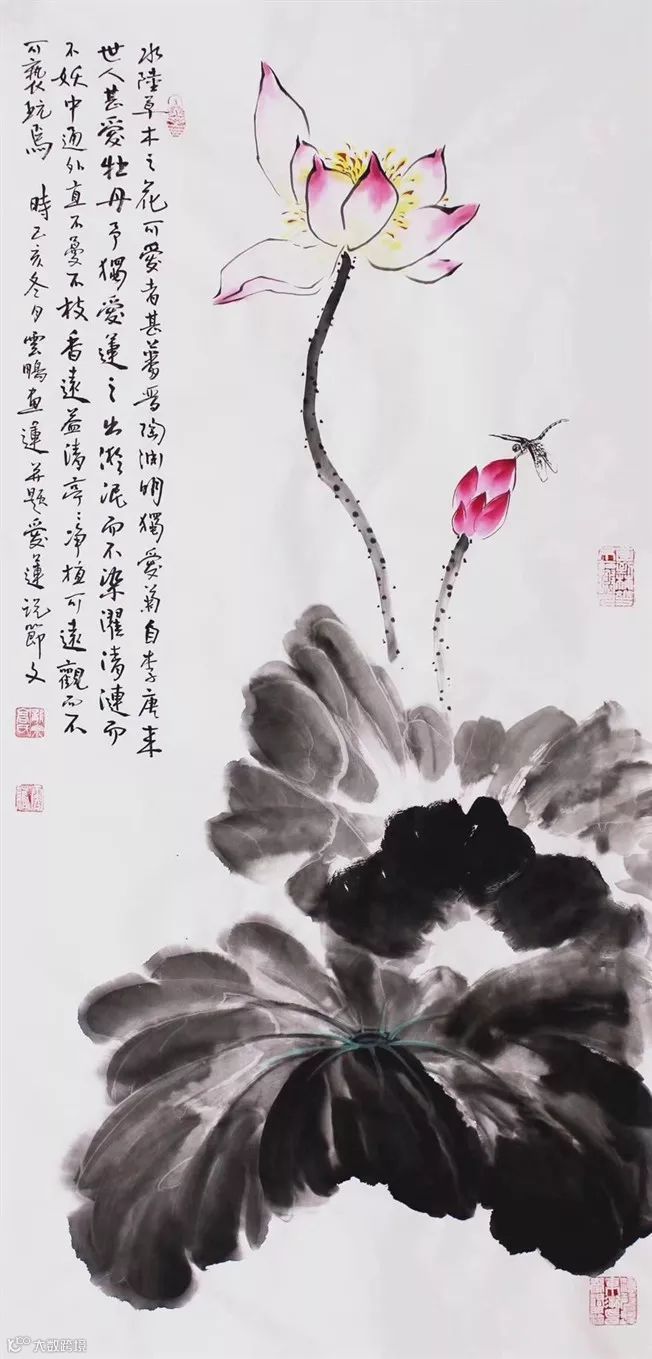 水陸草木之花可愛者甚蕃晋陶渊明獨愛菊自李唐来
世人甚愛牡丹予獨愛蓮之出淤泥而不染濯清漣而
不妖中通外直不蔓不枝香遠益清亭々凈植可遠觀而不
可褻玩焉 時乙亥冬月雲鵬画蓮并題愛蓮説節文
大数跨境